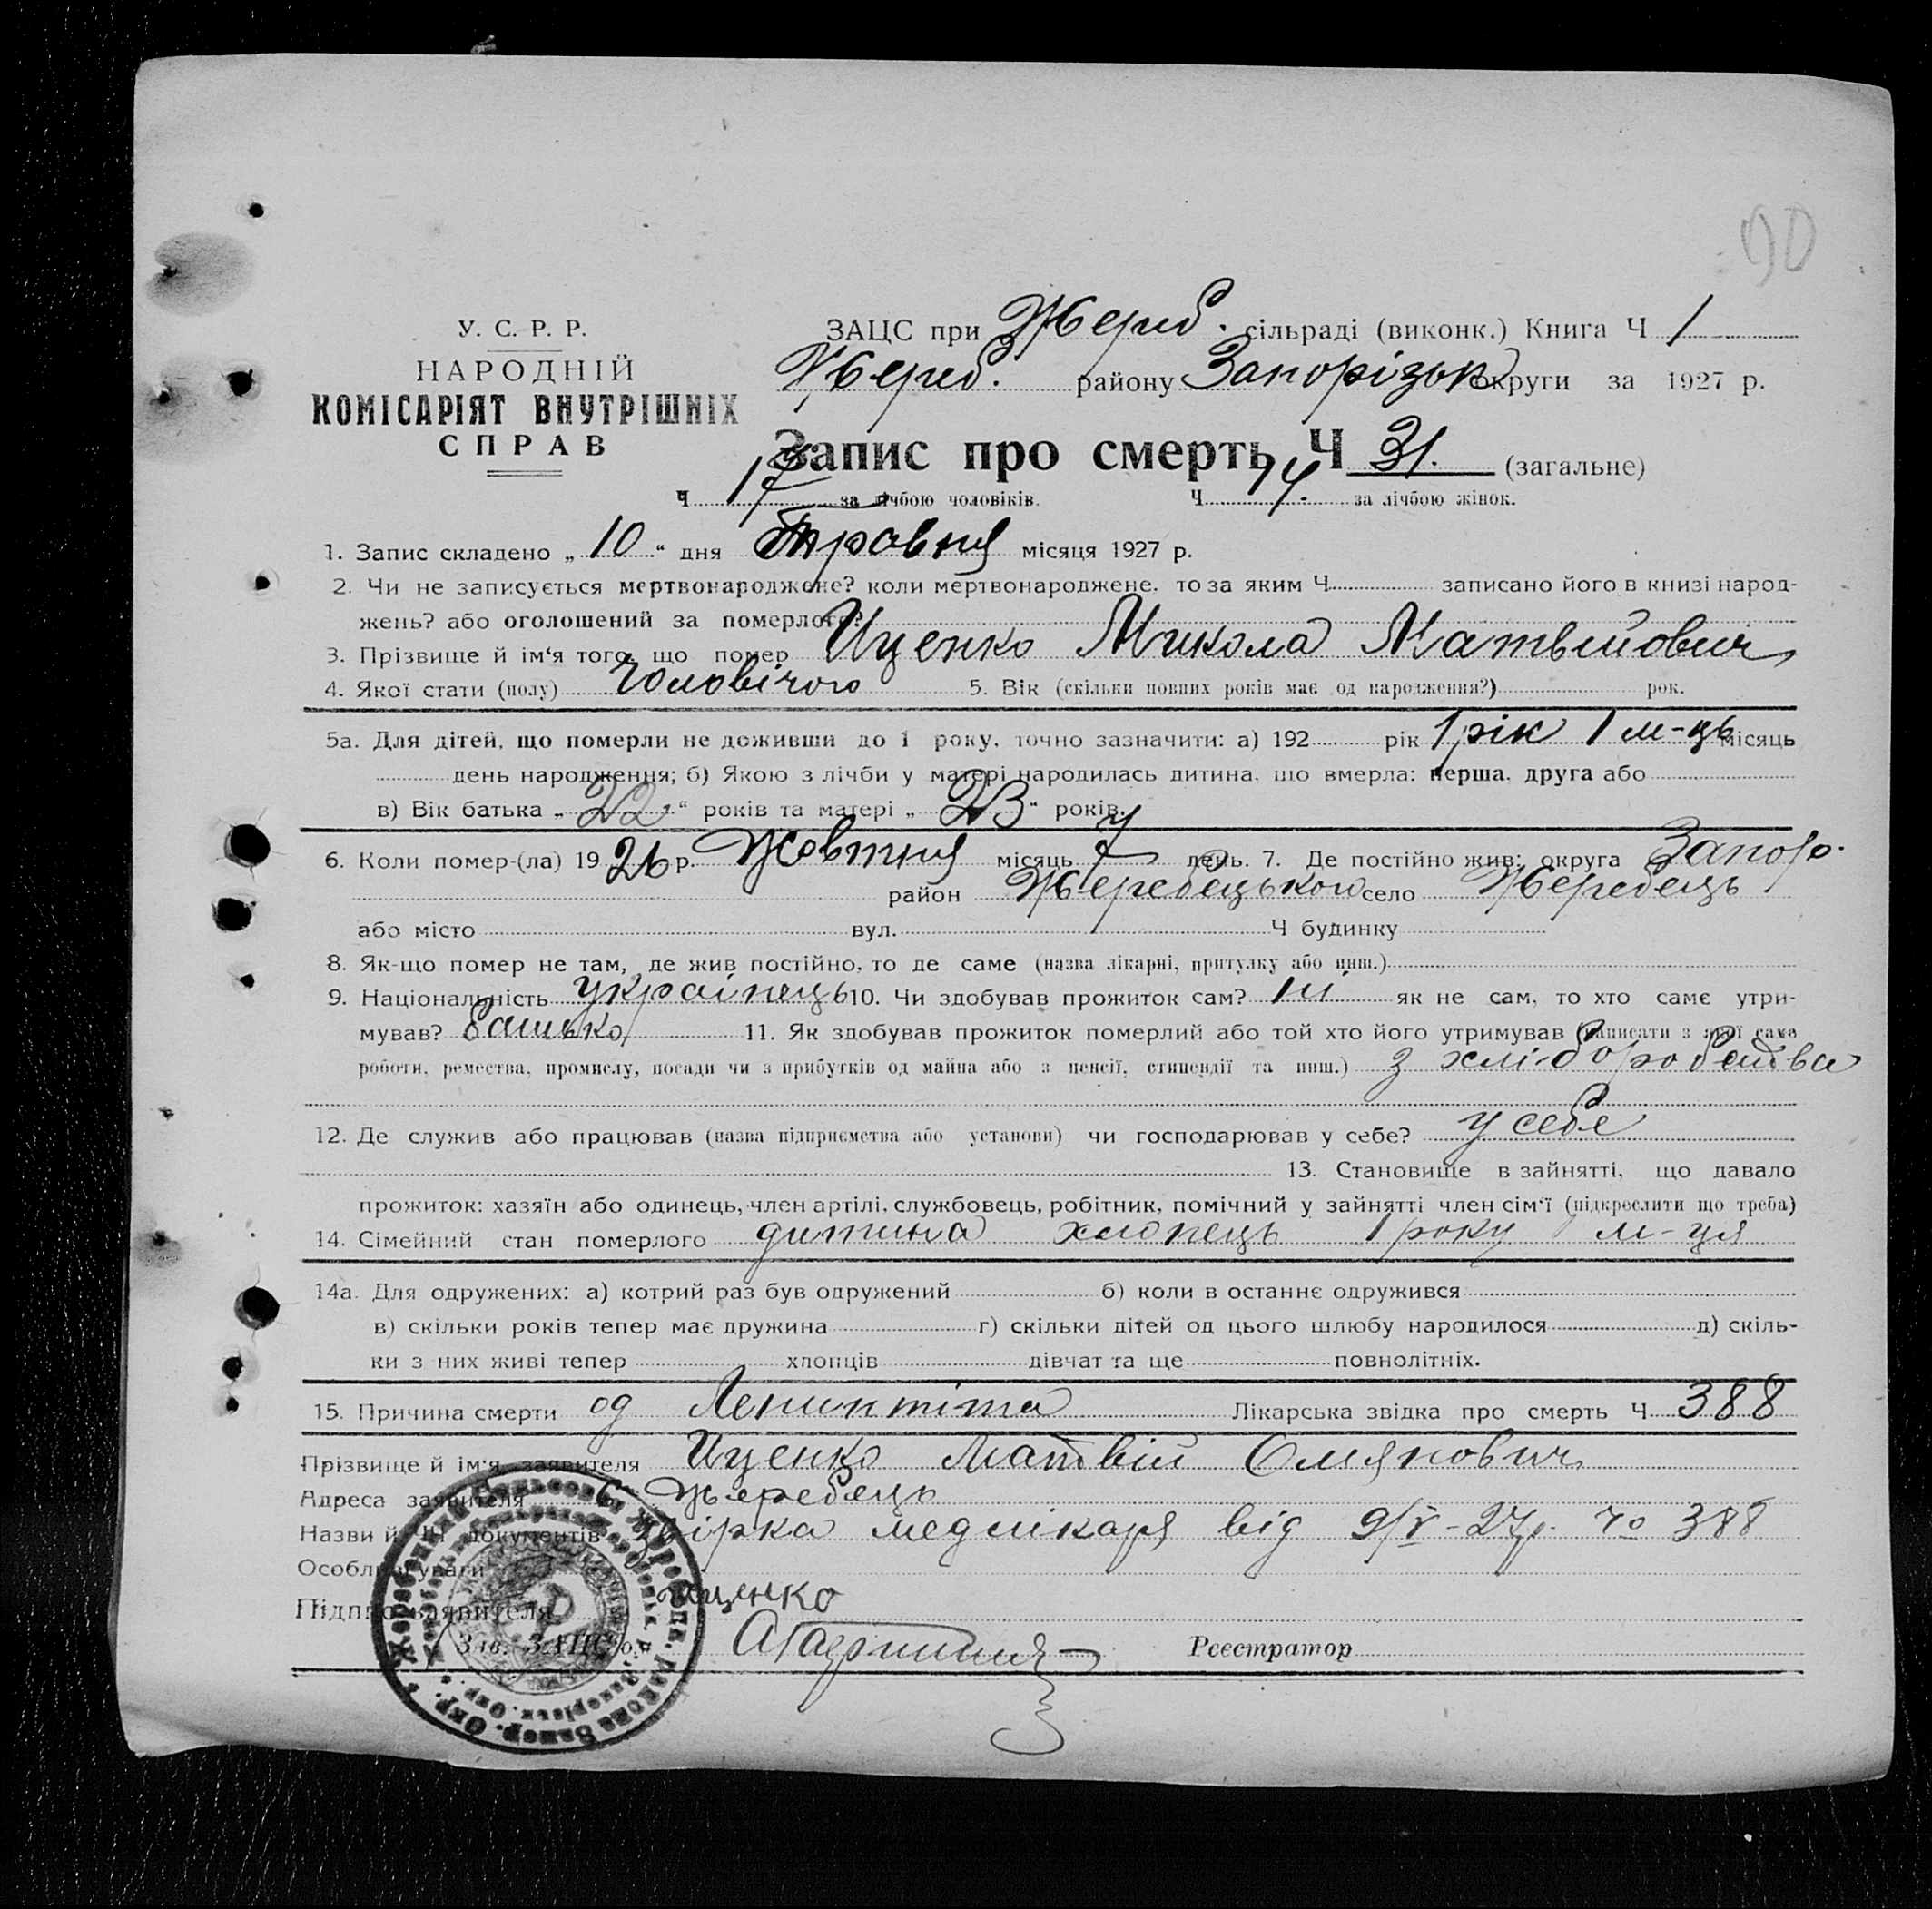 90
У. С. Р. Р.
НАРОДНІЙ
КОМІСАРІЯТ ВНУТРІШНІХ
СПРАВ
ЗАЦС при Жереб. сільраді (виконк.) Книга Ч 1
Жереб. району Запорізьк округи за 1927 р.
Запис про смерть Ч 31. (загальне)
Ч 17 за лічбою чоловіків. Ч 14. за лічбою жінок.
1. Запис складено „ 10 “ дня Травня місяця 1927 р.
2. Чи не записується мертвонароджене? коли мертвонароджене, то за яким Ч записано його в книзі народ-
жень? або оголошений за померлого?
3. Прізвище й ім‘я того, що помер Иценко Микола Матвійович
4. Якої стати (полу) Чоловічого 5. Вік (скільки повних років має од народження?) рок.
5а. Для дітей, що померли не доживши до 1 року, точно зазначити: а) 192 рік 1 рік 1 м-ць місяць
день народження; б) Якою з лічби у матері народилась дитина, що вмерла: перша, друга або
в) Вік батька „ 22 “ років та матері „ 23 “ років.
6. Коли помер-(ла) 19 26 р. Жовтня місяць 7 день. 7. Де постійно жив: округа Запор.
район Жеребецького село Жеребець
або місто вул. Ч будинку
8. Як-що помер не там, де жив постійно, то де саме (назва лікарні, притулку або инш.)
9. Національність українець 10. Чи здобував прожиток сам? ні як не сам, то хто саме утри-
мував? батько 11. Як здобував прожиток померлий або той хто його утримував (написати з якої саме
роботи, ремества, промислу, посади чи з прибутків од майна або з пенсії, стипендії та инш.) з хліборобства
12. Де служив або працював (назва підприємства або установи) чи господарював у себе? у себе
13. Становище в зайнятті, що давало
прожиток: хазяїн або одинець, член артілі, службовець, робітник, помічний у зайнятті член сім‘ї (підкреслити що треба)
14. Сімейний стан померлого дитина хлопець 1 року 1 м-ця
14а. Для одружених: а) котрий раз був одружений б) коли в останнє одружився
в) скільки років тепер має дружина г) скільки дітей од цього шлюбу народилося д) скіль-
ки з них живі тепер хлопців дівчат та ще повнолітніх.
15. Причина смерти од Лепинтіта Лікарська звідка про смерть Ч 388
Прізвище й ім‘я заявителя Иценко Матвій Омянович
Адреса заявителя с Жеребець
Назви й ЧЧ документів медлікаря від 9/V-27р. 388
Особливі уваги
Підпис заявителя Иценко
Зав. ЗАЦС‘ом Реєстратор